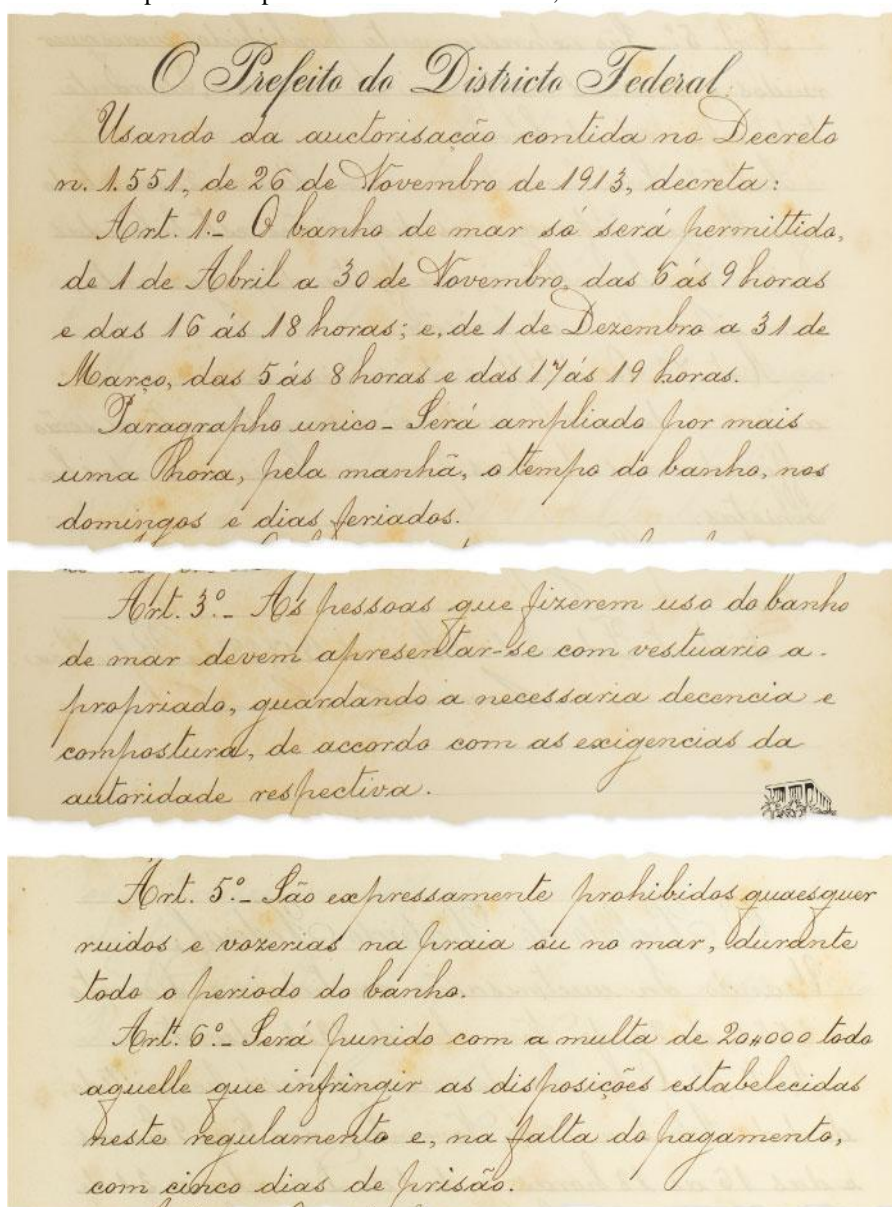 O Prefeito do Districto Federal:
Usando da auctorisação contida no Decreto
n. 1.551, de 26 de Novembro de 1913, decreta:
Art. 1º_ O banho de mar só será permittido,
de 1 de Abril a 30 de Novembro, das 6 ás 9 horas
e das 16 ás 18 horas; e, de 1 de Dezembro a 31 de
Março, das 5 ás 8 horas e das 17 ás 19 horas.
Paragrapho unico_ Será ampliado por mais
uma hora, pela manhã, o tempo do banho, nos
domingos e dias feriados.
Art. 3º_ As pessoas que fizerem uso do banho
de mar devem apresentar-se com vestuario a-
propriado, guardando a necessaria decencia e
compostura, de accordo com as exigencias da
autoridade respectiva.
Art. 5º_ São expressamente prohibidos quaesquer
ruidos e vozerias na praia ou no mar, durante
todo o periodo do banho.
Art. 6º_ Será punido com a multa de 20$000 todo
aquelle que infringir as disposições estabelecidas
neste regulamento e, na falta do pagamento,
com cinco dias de prisão.